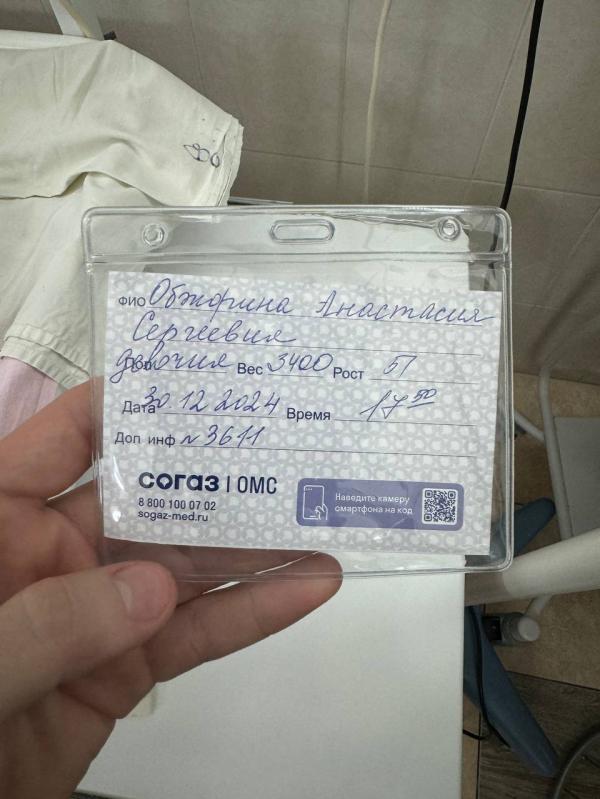 ФИО Обжорина Анастасия
Сергеевна
Пол девочка Вес 3400 Рост 51
Дата 30.12.2024 Время 17 50
Доп инф № 3611
согаз | ОМС
8 800 100 07 02
sogaz-med.ru
Наведите камеру
смартфона на код